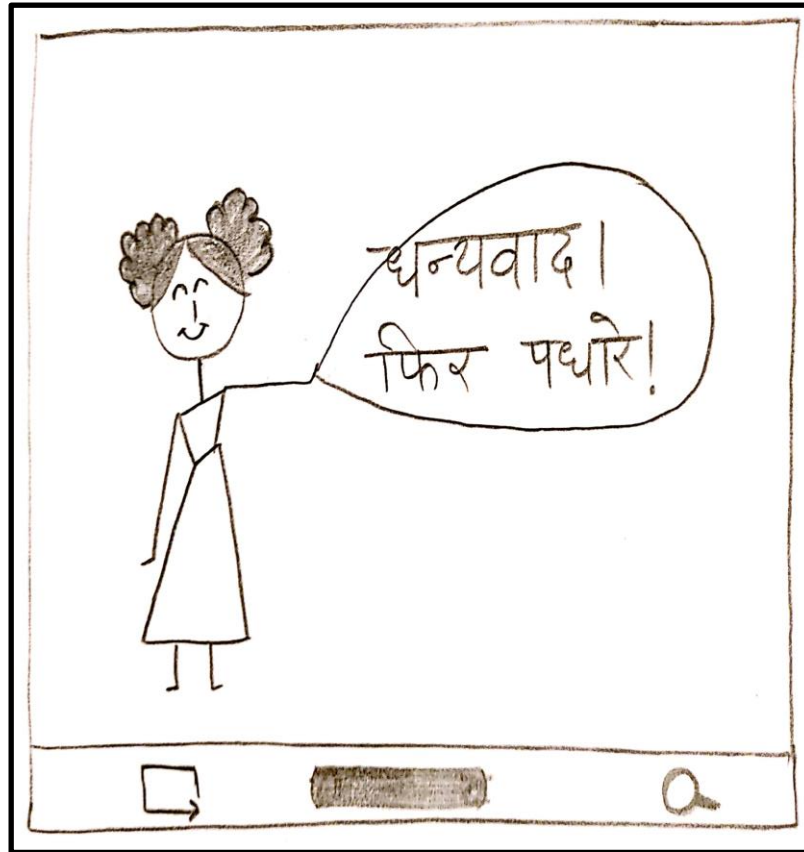 धन्यवाद।
फिर पधारे!